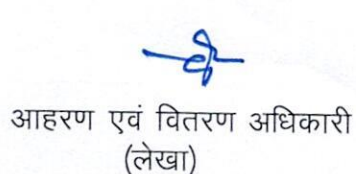 आहरण एवं वितरण अधिकारी
(लेखा)